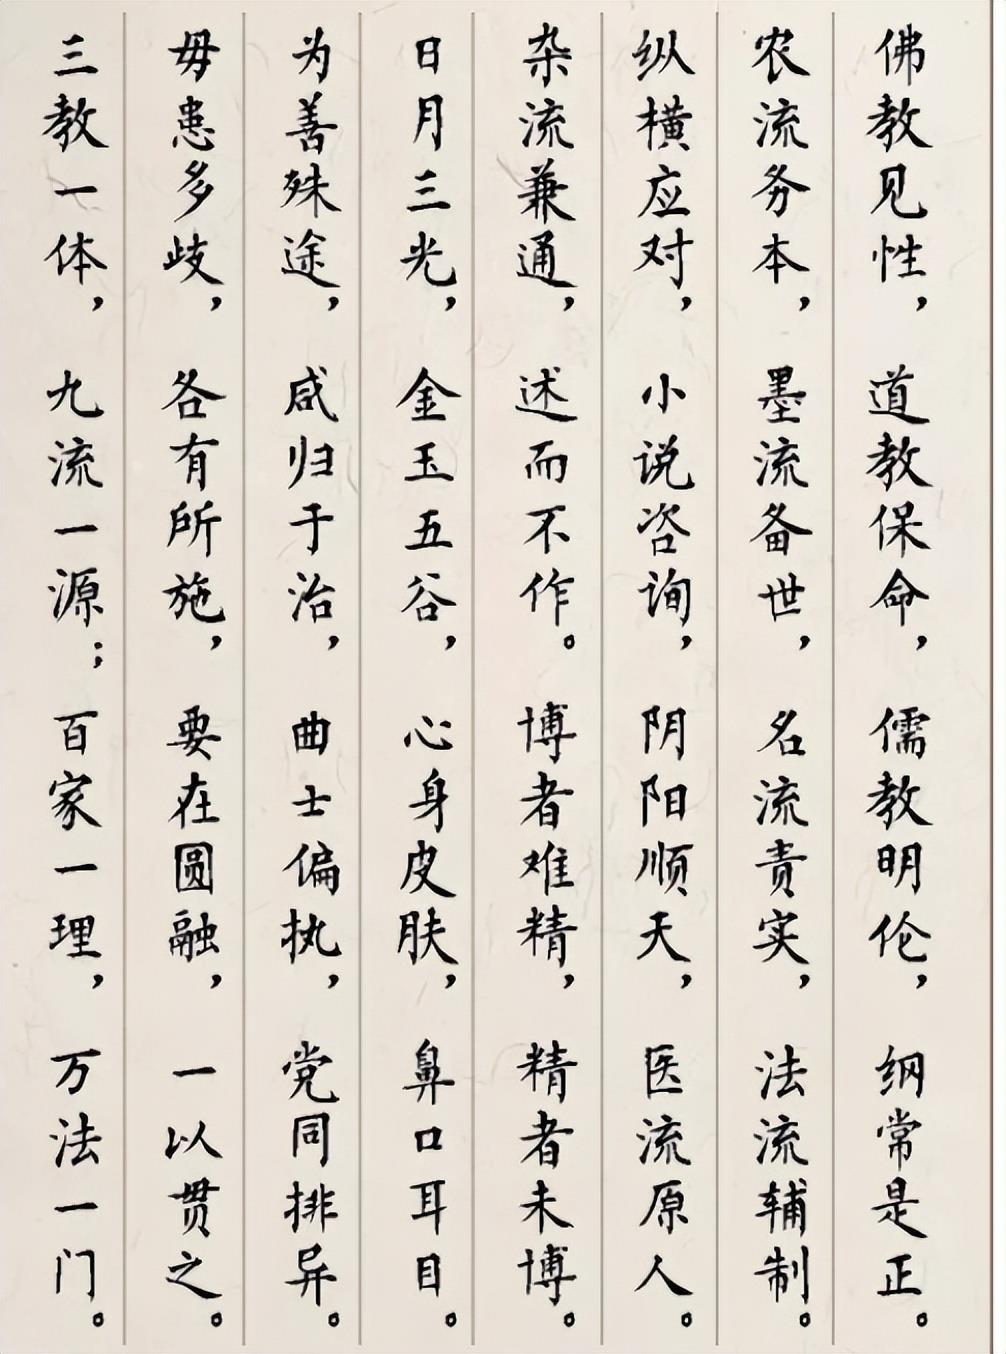 佛教见性，道教保命，儒教明伦，纲常是正。
农流务本，墨流备世，名流责实，法流辅制。
纵横应对，小说咨询，阴阳顺天，医流原人。
杂流兼通，述而不作。博者难精，精者未博。
日月三光，金玉五谷，心身皮肤，鼻口耳目。
为善殊途，咸归于治，曲士偏执，党同排异。
毋患多歧，各有所施，要在圆融，一以贯之。
三教一体，九流一源；百家一理，万法一门。